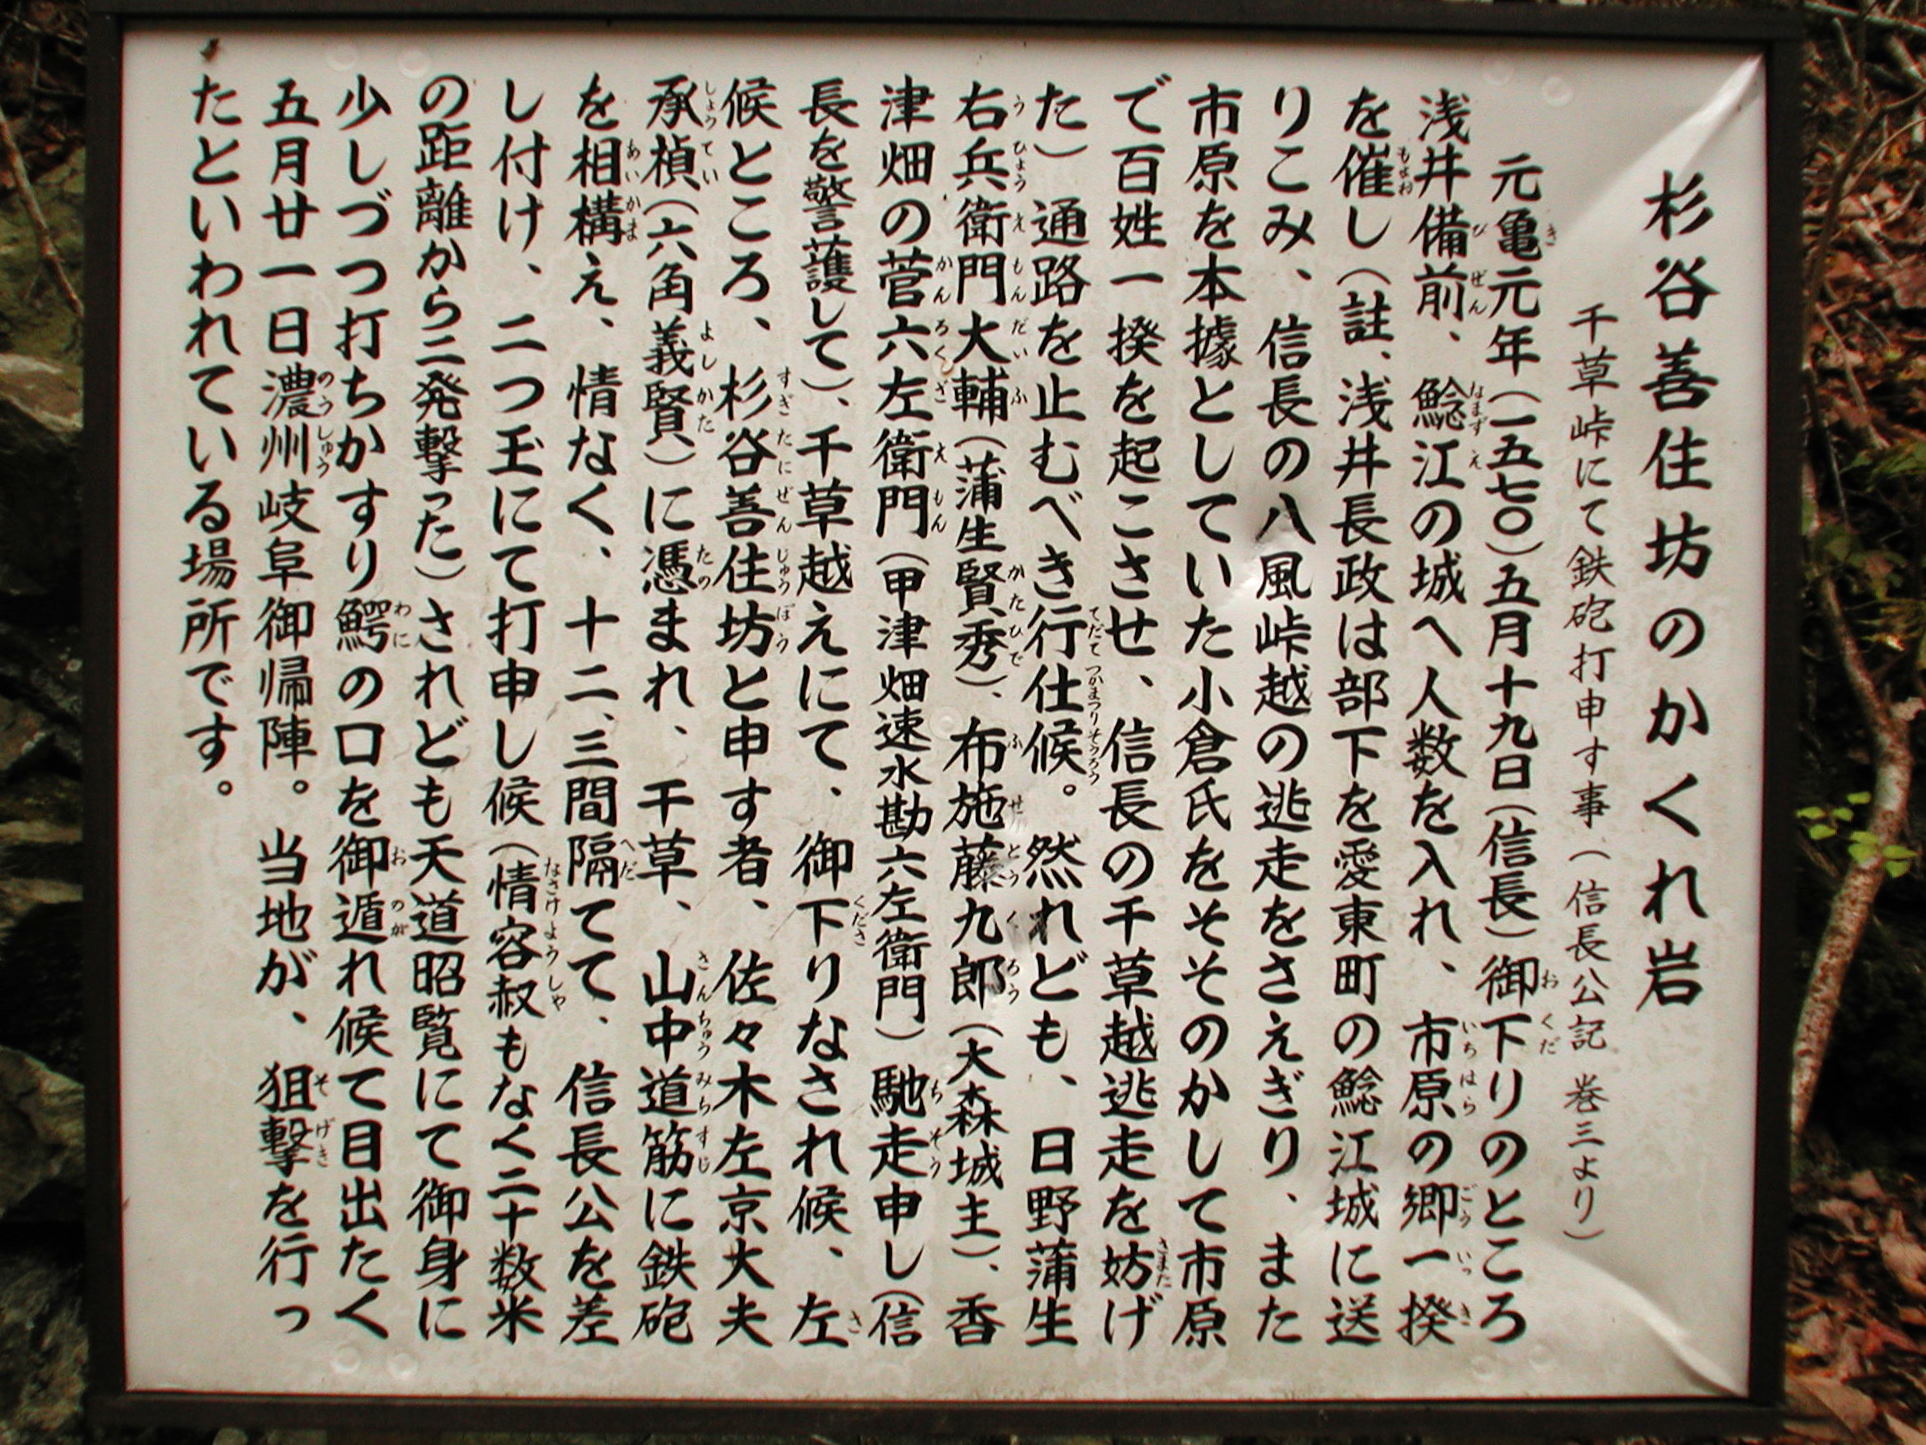 杉谷善住坊のかくれ岩
千草峠にて鉄砲打申す事（信長公記 巻三より）
元亀元年（一五七〇）五月十九日（信長）御下りのところ
浅井備前、鯰江の城へ人数を入れ、市原の郷一揆
を催し（註、浅井長政は部下を愛東町の鯰江城に送
りこみ、信長の八風峠越の逃走をさえぎり、また
市原を本據としていた小倉氏をそそのかして市原
で百姓一揆を起こさせ、信長の千草越逃走を妨げ
た）通路を止むべき行仕候。然れども、日野蒲生
右兵衛門大輔（蒲生賢秀）、布施藤九郎（大森城主）、香
津畑の菅六左衛門（甲津畑速水勘六左衛門）馳走申し（信
長を警護して）、千草越えにて、御下りなされ候、左
候ところ、杉谷善住坊と申す者、佐々木左京大夫
承禎（六角義賢）に憑まれ、千草、山中道筋に鉄砲
を相構え、情なく、十二、三間隔てて、信長公を差
し付け、二つ玉にて打申し候（情容赦もなく二十数米
の距離から二発撃った）されども天道昭覧にて御身に
少しづつ打ちかすり鰐の口を御遁れ候て目出たく
五月廿一日濃州岐阜御帰陣。当地が、狙撃を行っ
たといわれている場所です。